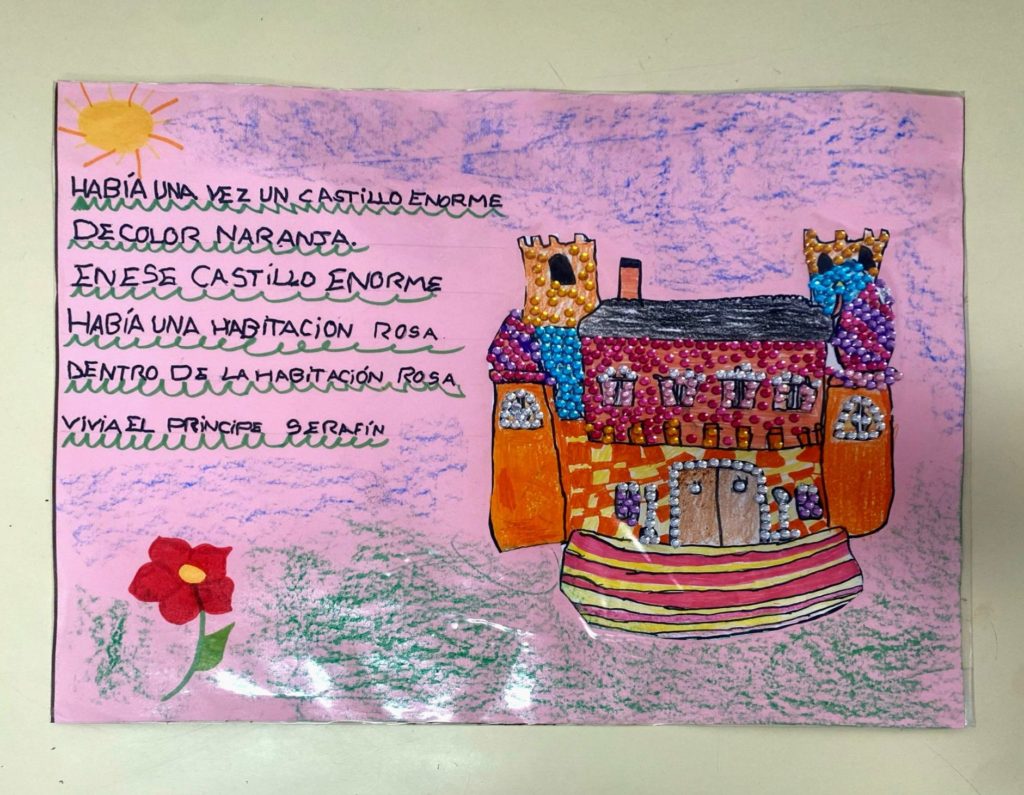 HABÍA UNA VEZ UN CASTILLO ENORME
DE COLOR NARANJA.
EN ESE CASTILLO ENORME
HABÍA UNA HABITACION ROSA
DENTRO DE LA HABITACIÓN ROSA
VIVIA EL PRINCIPE SERAFÍN